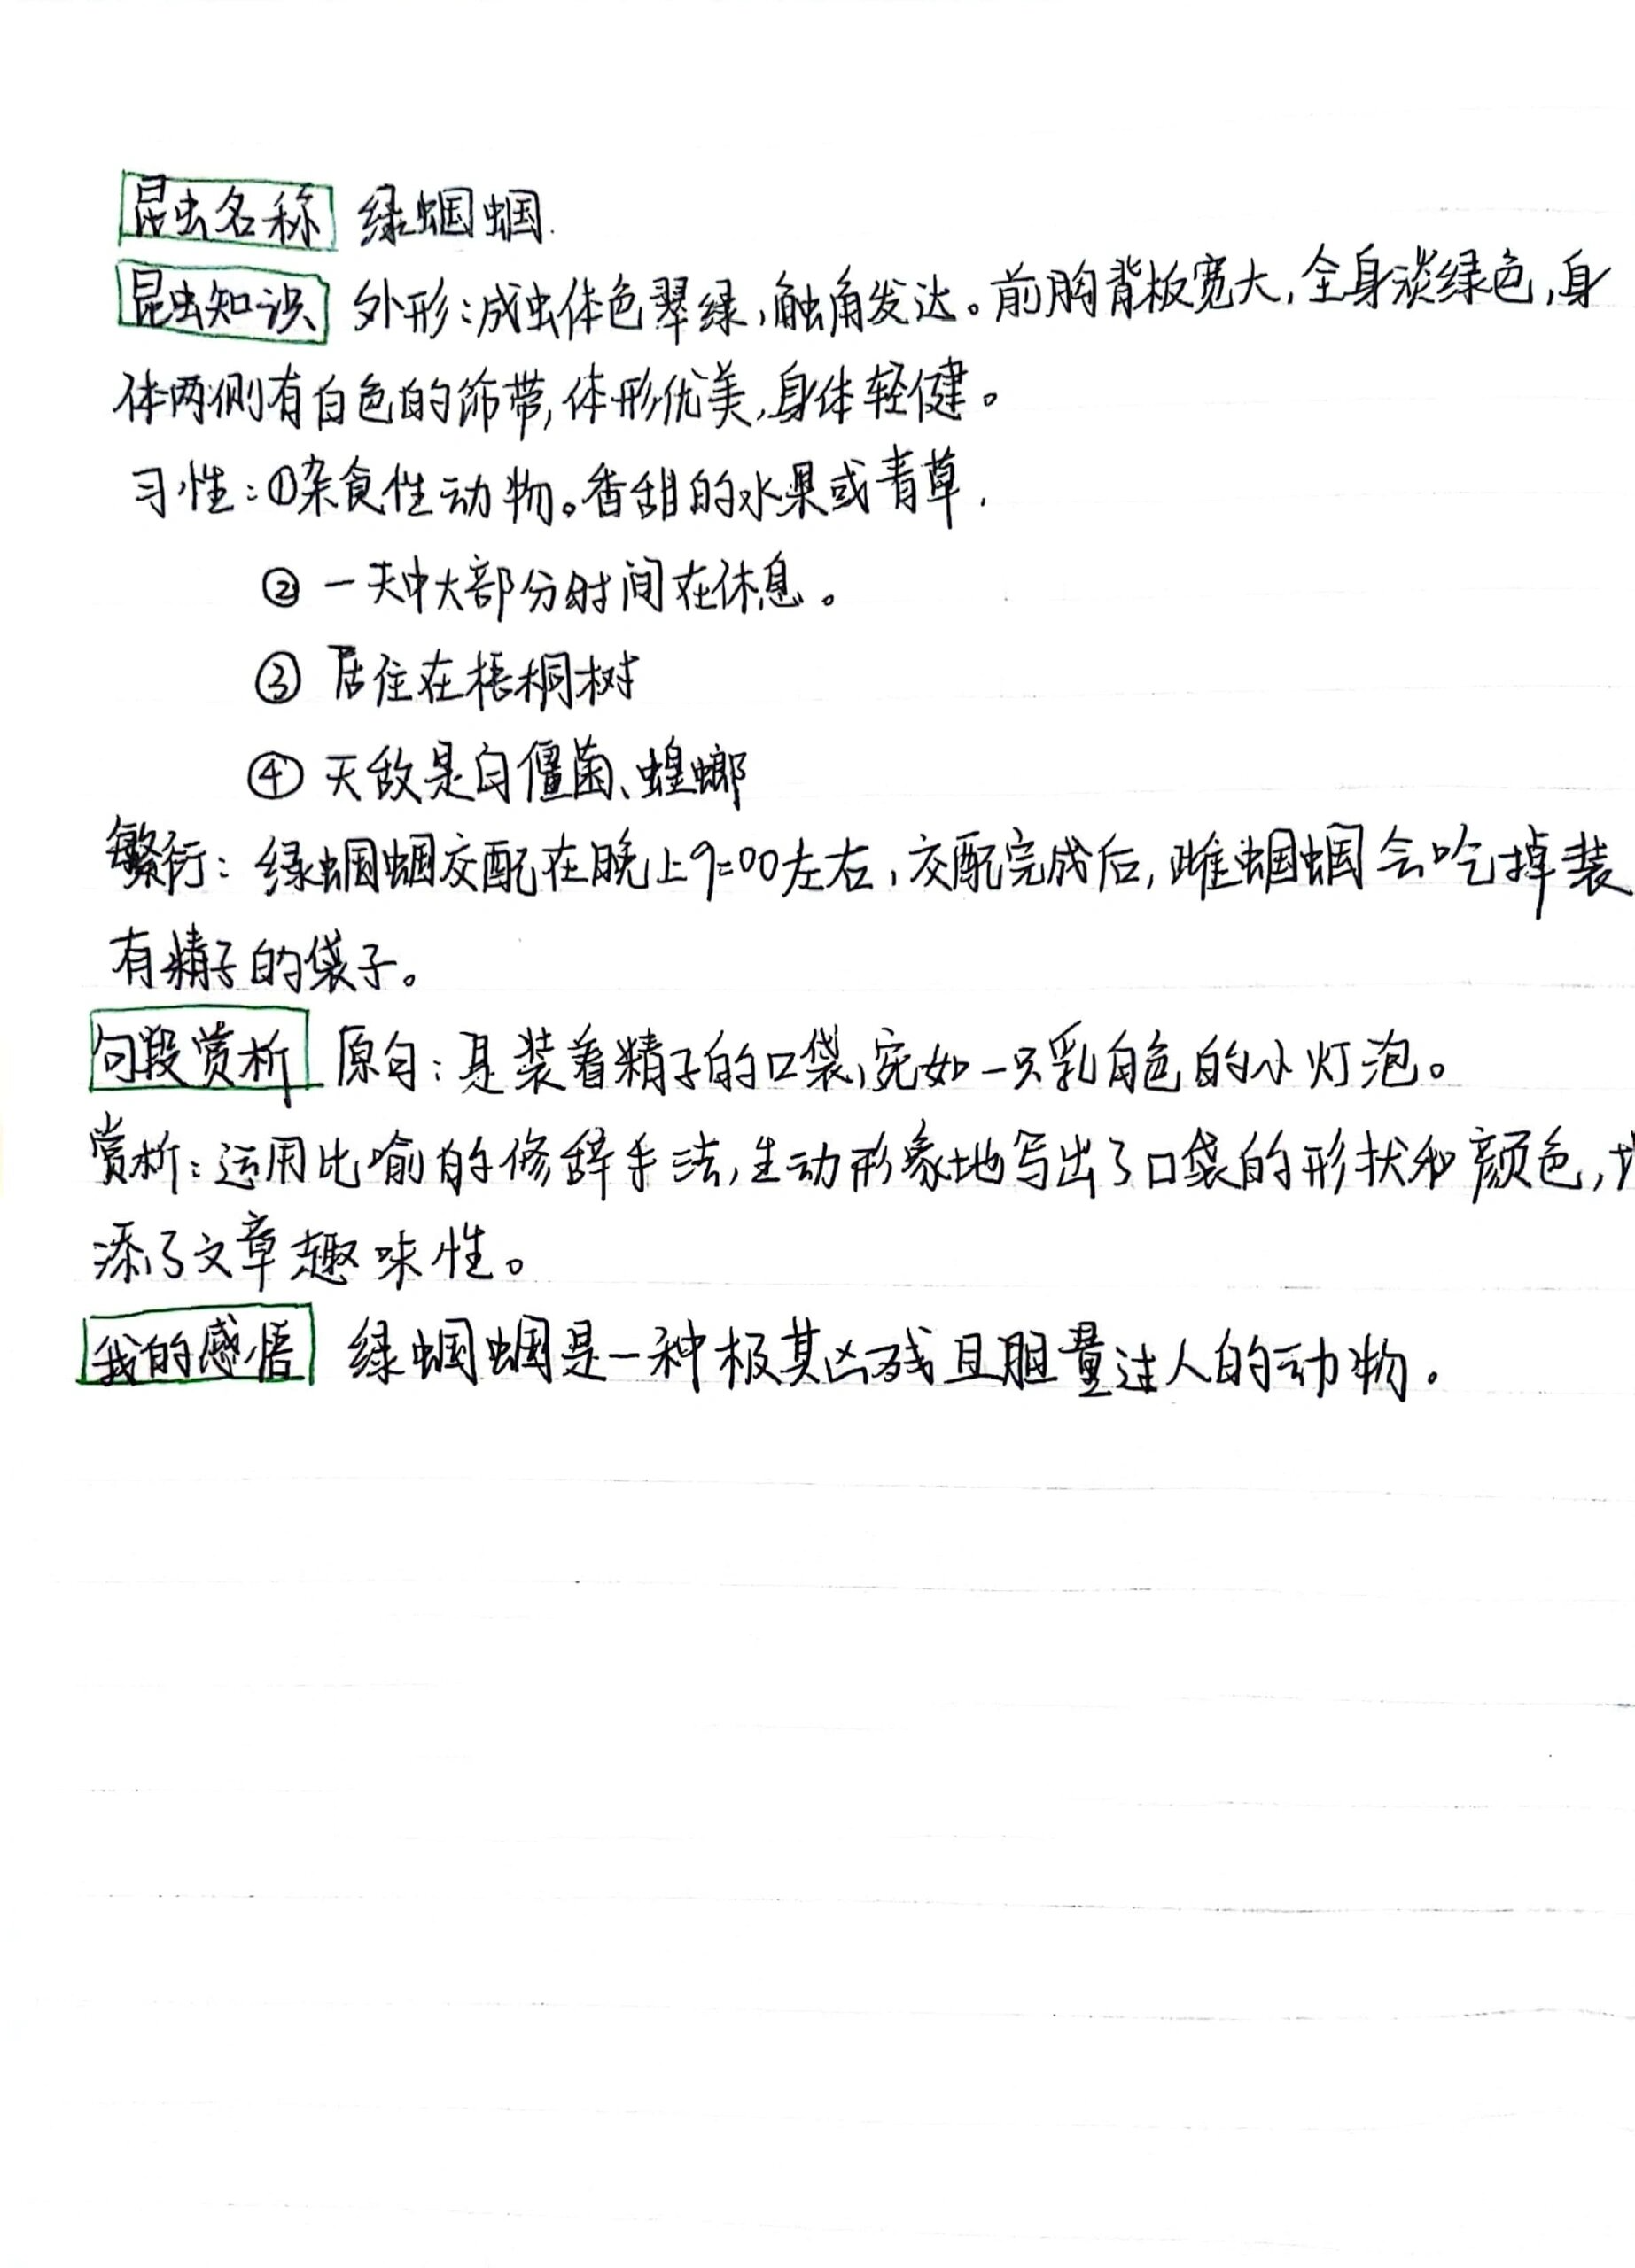 昆虫名称 绿蝈蝈.
昆虫知识 外形:成虫体色翠绿,触角发达。前胸背板宽大,全身淡绿色,身
体两侧有白色的饰带,体形优美,身体轻健。
习性:①杂食性动物。香甜的水果或青草.
② 一天中大部分时间在休息。
③ 居住在梧桐树
④ 天敌是白僵菌、蝗螂
繁衍:绿蝈蝈交配在晚上9:00左右,交配完成后,雌蝈蝈会吃掉装
有精子的袋子。
句段赏析 原句:是装着精子的口袋,宛如一只乳白色的小灯泡。
赏析:运用比喻的修辞手法,生动形象地写出了口袋的形状和颜色,
添了文章趣味性。
我的感悟 绿蝈蝈是一种极其凶残且胆量过人的动物。